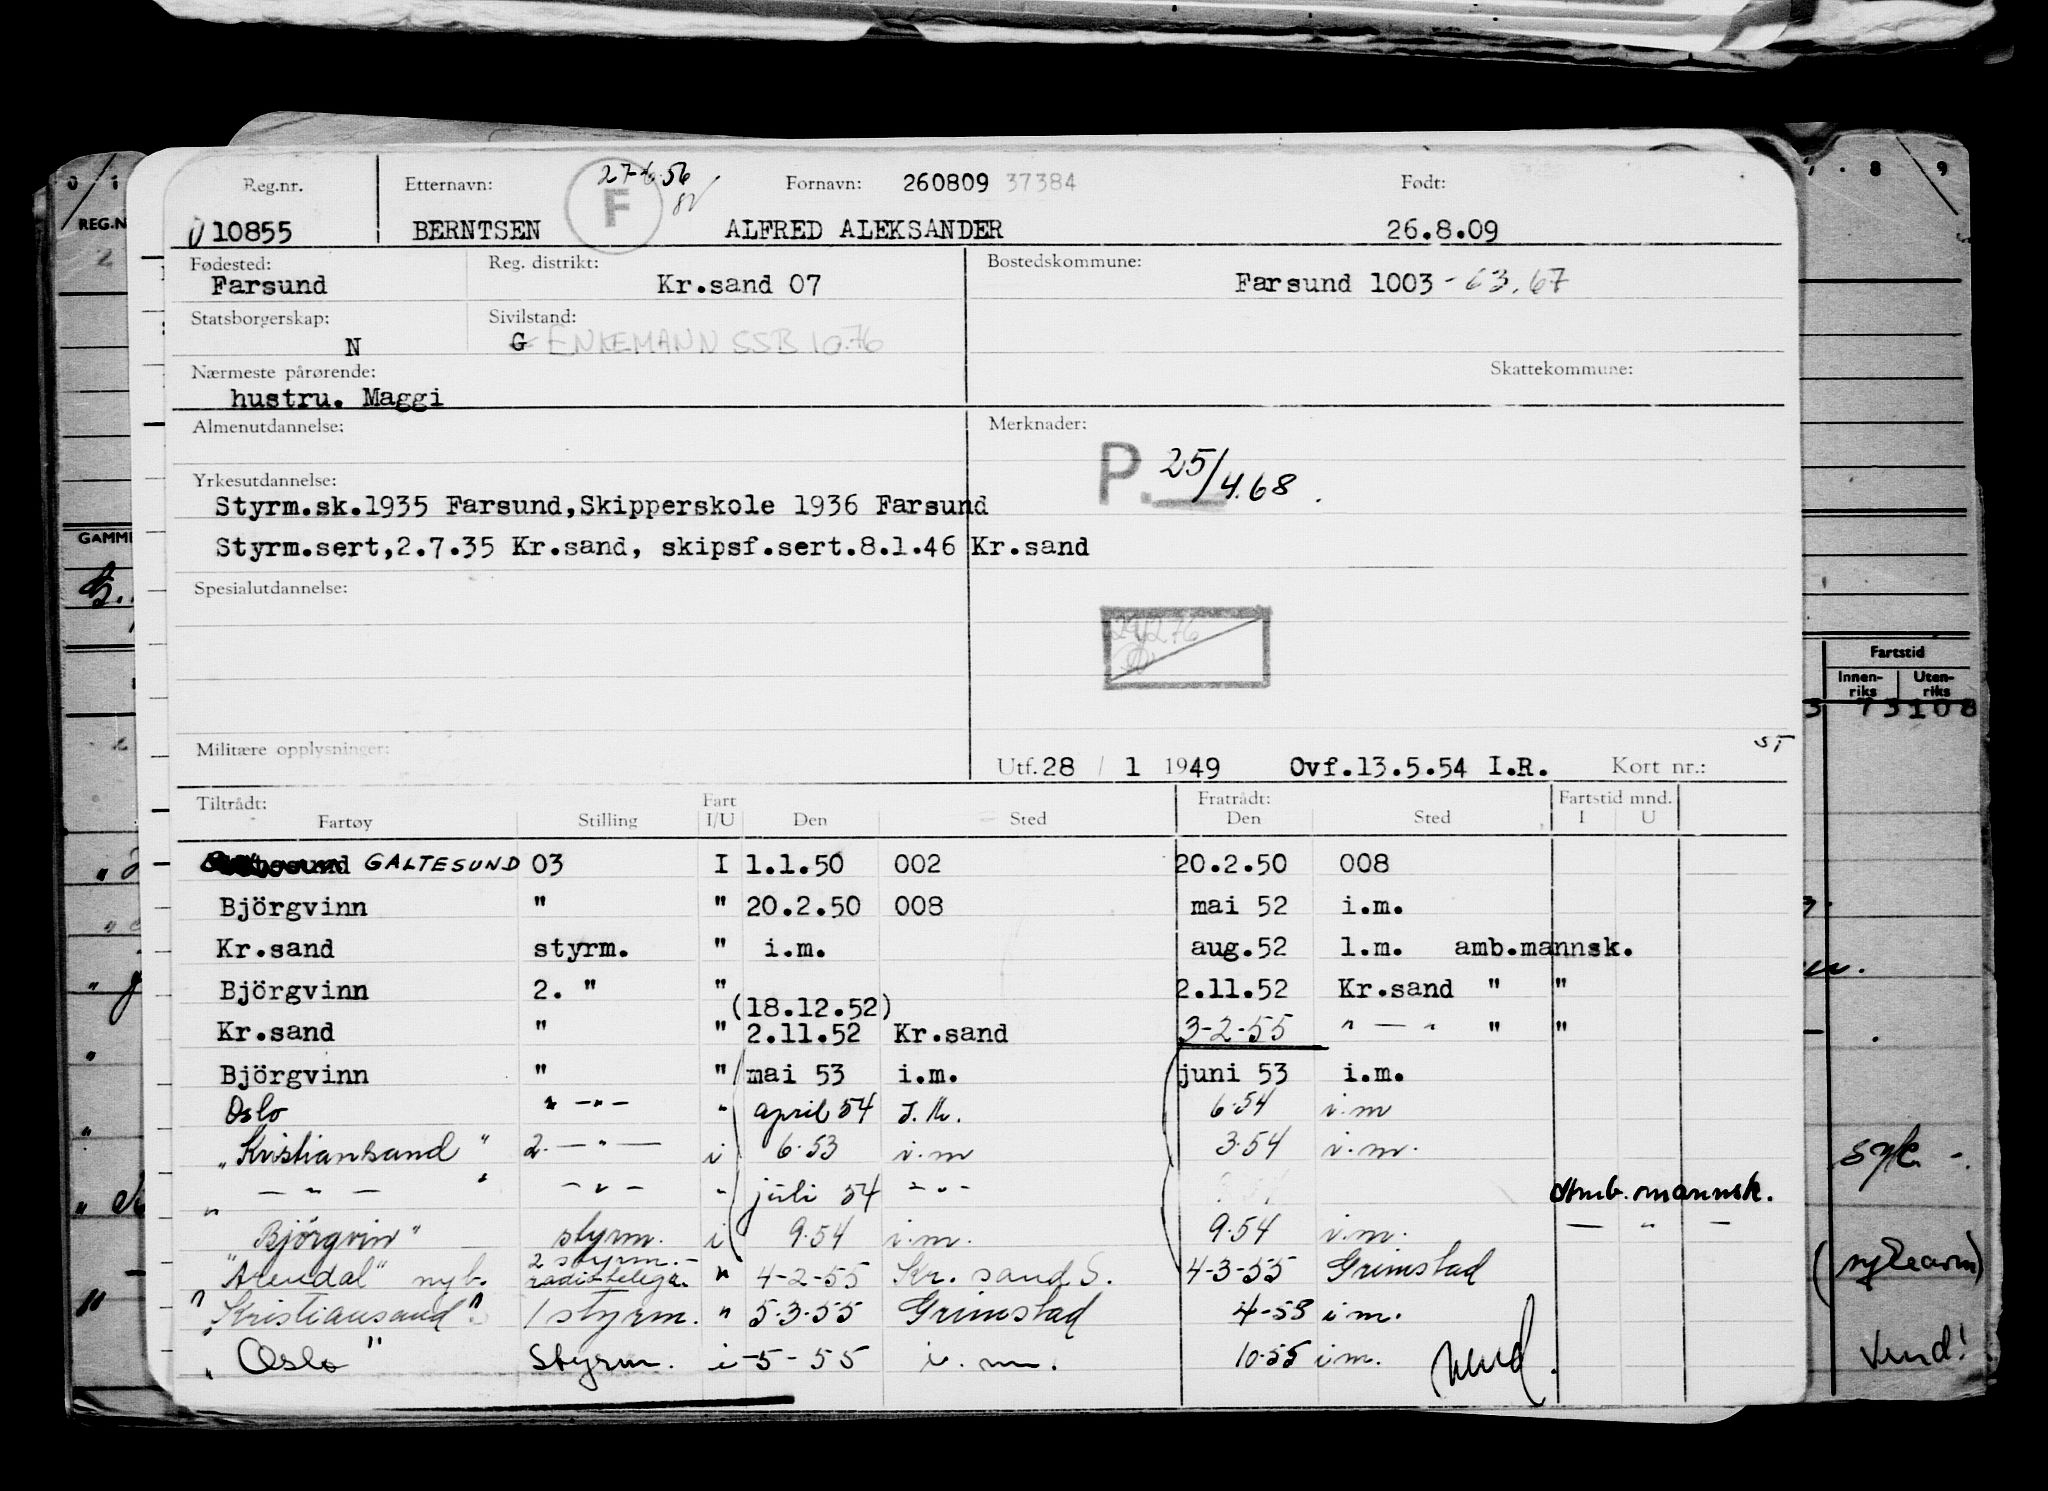 Reg.nr. Etternavn: 27-6-56 F Fornavn: 260809 37384 Født:
010855 BERNTSEN ALFRED ALEKSANDER 26.8.09
Fødested: Reg. distrikt: Bostedskommune:
Farsund Kr.sand 07 Farsund 1003 - 63. 67
Statsborgerskap: Sivilstand:
N G ENKEMANN SSB 10.76
Nærmeste pårørende: Skattekommune:
hustru. Maggi
Almenutdannelse: Merknader:
P. 25/4.68.
Yrkesutdannelse:
Styrm.sk.1935 Farsund,Skipperskole 1936 Farsund
Styrm.sert,2.7.35 Kr.sand, skipsf.sert.8.1.46 Kr.sand
Spesialutdannelse:
Militære opplysninger: ST
Utf.28 / 1 1949 Ovf.13.5.54 I.R. Kort nr.:
Tiltrådt: Fart Fratrådt: Fartstid mnd.
Fartøy Stilling I/U Den Sted Den Sted I U
GALTESUND 03 I 1.1.50 002 20.2.50 008
Björgvinn " " 20.2.50 008 mai 52 i.m.
Kr.sand styrm. " i.m. aug.52 l.m. amb.mannsk.
Björgvinn 2. " " 2.11.52 Kr.sand " "
(18.12.52)
Kr.sand " " 2.11.52 Kr.sand 3-2-55 " — " " "
Björgvinn " " mai 53 i.m. juni 53 i.m.
Oslo " —"— " april 54 6.54 i.m
"Kristiansand" 2. — " — i 6.53 i.m 3.54 i.m.
" — " — " — " — " juli 54 - " - Amb. mannsk.
Björgvin" styrm. i 9.54 i.m. 9.54 i.m. — " —
"Arendal" nyb. 2 styrm.- radiotelegr. " 4-2-55 Kr. sand S. 4-3-55 Grimstad
"Kristiansand" 1 styrm. " 5.3.55 Grimstad i m.
"Oslo" Styrm. i -5-55 i. m. 10.55 i m. vend.
REG.N
GAMME
8 9
Fartstid
Innen-riks Uten-riks
syk -.
Vend!